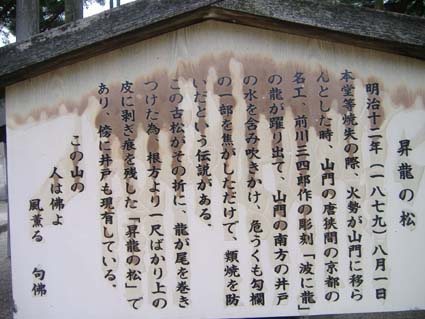 昇龍の松
明治十二年(一八七九)八月一日
本堂等焼失の際、火勢が山門に移ら
んとした時、山門の唐狭間の京都の
名工、前川三四郎作の彫刻「波に龍」
の龍が躍り出て、山門の南方の井戸
の水を含み吹きかけ、危うくも勾欄
の一部を焦がしただけで、類焼を防
いだという伝説がある。
この古松がその折に、龍が尾を巻き
つけた為、根方より一尺ばかり上の
皮に剥ぎ痕を残した「昇龍の松」で
あり、傍に井戸も現有している。
この山の
人は佛よ
風薫る
句佛